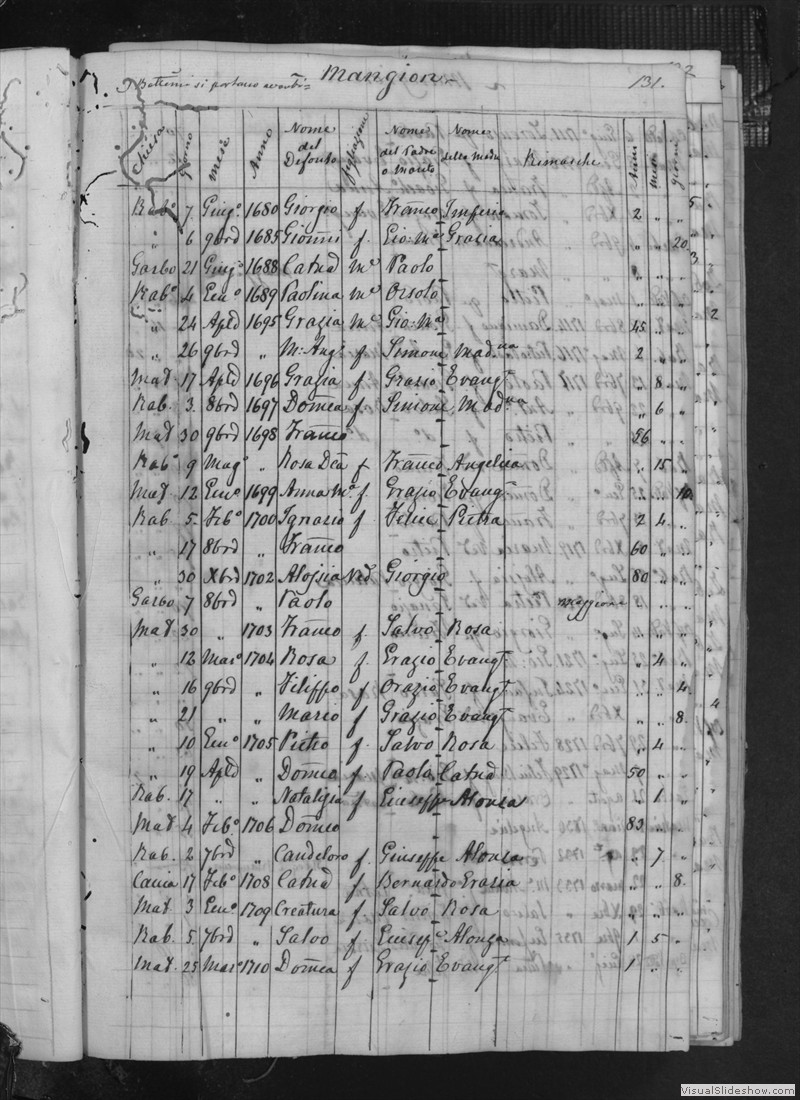 Mangion
131.
Chiesa Giorno Mese Anno Nome del Defonto Nome del Padre o marito Nome della Madre Rimarche Anni Mesi giorni
Rabo. 7 Giugo. 1680 Giorgio f. Franco Imperia 2 „ „
„ 6 9brd 1685 Gionni f. Gio: Ma. Grazia „ „ 20
Garbo 21 Giugo. 1688 Catnd Me Paolo
Rabo. 4 Eno. 1689 Paolina Me Orsolo
„ 24 Apld 1695 Grazia Me Gio: Ma. 45 „ „
„ 26 9brd „ M: Anga. f. Simone Madna 2 „ „
Mad. 17 Apld 1696 Grazia f. Grazio Evangt. 8 „
Rab. 3. 8brd 1697 Domca f. Simone Madna „ 6 „
Mad. 30 9brd 1698 Franco 56 „ „
Rabo. 9 Mago. „ Rosa Dca f. Franco Angelica „ 15 „
Mad. 12 Eno. 1699 Anna Ma. f. Grazio Evangt. „ „ 10
Rab. 5. Febo. 1700 Ignazio f. Felic Pietra 2 4 „
„ 17 8brd „ Franco 60 „ „
„ 30 Xbrd 1702 Aloisia Vid. Giorgio 80 „ „
Garbo 7 8brd „ Paolo Maggiore „ „ „
Mad. 30 „ 1703 Franco f. Salvo Rosa „ „ „
„ 12 Maro. 1704 Rosa f. Grazio Evangt. „ 4 „
„ 16 9brd „ Filippo f. Orazio Evangt. „ „ 4
„ 21 „ „ Mario f. Grazio Evangt. „ „ 8.
„ 10 Eno. 1705 Pietro f. Salvo Rosa „ 4 „
„ 19 Apld „ Domca f. Paolo Catnd 50 „ „
Rab. 17 „ „ Natalizia f. Giuseppe Alonza „ 1 „
Mad. 4 Febo. 1706 Domco 83 „ „
Rab. 2 7brd „ Candeloro f. Giuseppe Alonza „ 7 „
Cauia 17 Febo. 1708 Catnd f. Bernardo Grazia „ „ 8.
Mad. 3 Eno. 1709 Creatura f. Salvo Rosa „ „ „
Rab. 5. 7brd „ Salvo f. Giusepe Alonza 1 5 „
Mad. 25 Maro. 1710 Domca f. Grazio Evangt. 1 „ „
VisualSlideshow.com